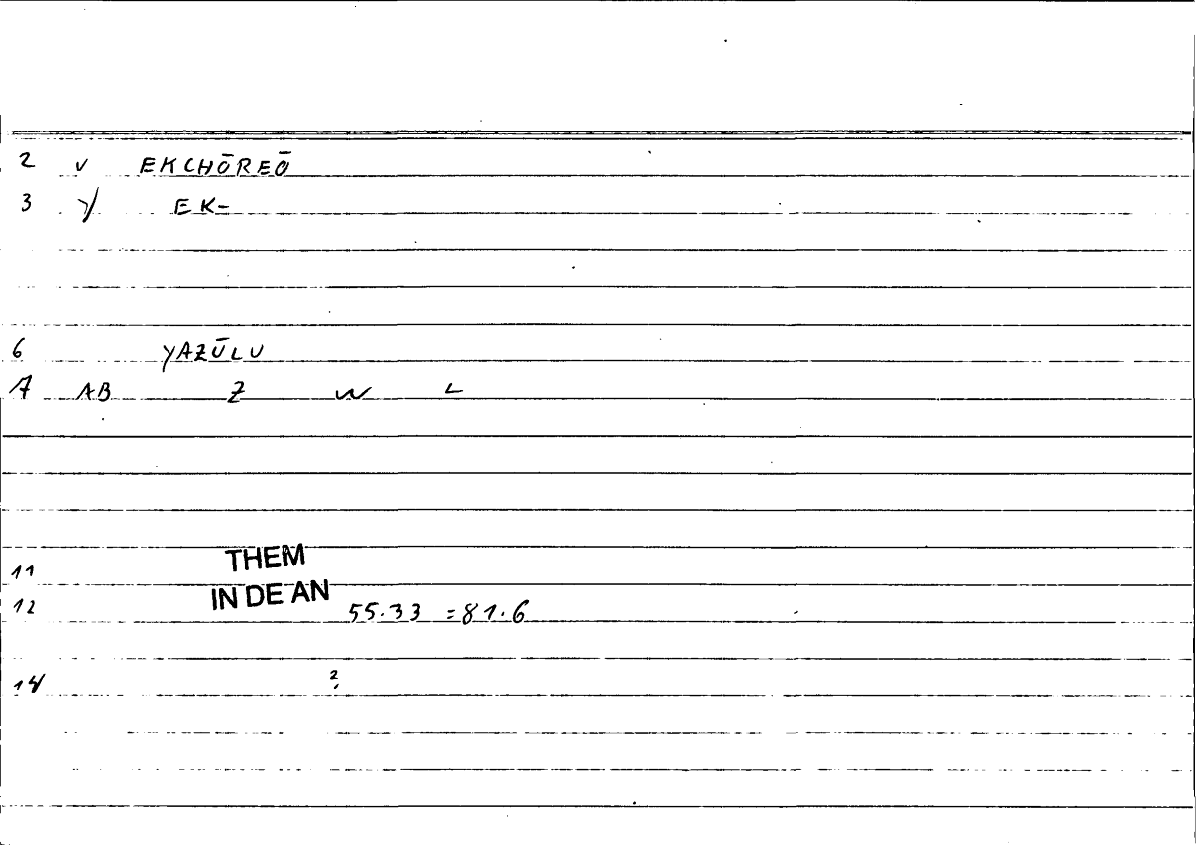 2 v EKCHŌREŌ
3 y EK-
6 YAZŪLU
7 AB Z W L
11 THEM
IN DE AN
12 55.33 = 81.6
14 ?